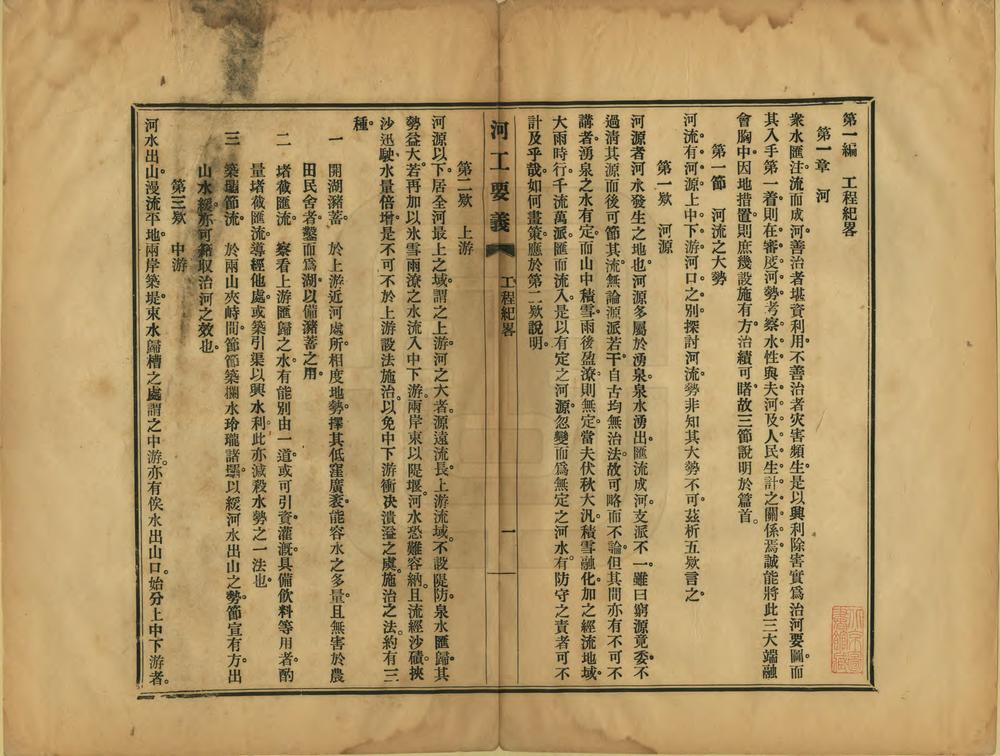 第一編　工程紀畧
第一章　河
衆水匯注流而成河。善治者堪資利用。不善治者灾害頻生。是以興利除害實爲治河要圖。而
其入手第一着。則在審度河勢。考察水性。與夫河及人民生計之關係焉。誠能將此三大端融
會胸中。因地措置。則庶幾設施有方。治績可睹。故三節說明於篇首。
第一節　河流之大勢
河流有河源上中下游河口之別。探討河流勢非知其大勢不可。茲析五欵言之。
第一欵　河源
河源者。河水發生之地也。河源多屬於湧泉。泉水湧出。匯流成河。支派不一。雖曰窮源竟委。不
過清其源而後可節其流。無論源派若干。自古均無治法。故可略而不論。但其間亦有不可不
講者。湧泉之水有定。而山中積雪。雨後盈潦。則無定。當夫伏秋大汛。積雪融化。加之經流地域。
大雨時行。千流萬派匯而流入。是以有定之河源。忽變而爲無定之河水。有防守之責者。可不
計及乎哉。如何畫策。應於第二欵說明。
河工要義　工程紀畧　一
第二欵　上游
河源以下。居全河最上之域。謂之上游。河之大者。源遠流長。上游流域。不設隄防。泉水匯歸。其
勢益大。若再加以氷雪雨潦之水。流入中下游。兩岸束以隄堰。河水恐難容納。且流經沙磧。挾
沙迅駛。水量倍增。是不可不於上游設法施治。以免中下游衝决潰溢之虞。施治之法。約有三
種。
一　開湖瀦蓄　於上游近河處所。相度地勢。擇其低窪廣袤。能容水之多量。且無害於農
田民舍者。鑿而爲湖。以備瀦蓄之用。
二　堵截匯流　察看上游匯歸之水。有能別由一道。或可引資灌漑。具備飲料等用者。酌
量堵截匯流。導經他處。或築引渠。以興水利。此亦減殺水勢之一法也。
三　築壩節流　於兩山夾峙間。節節築攔水玲瓏諸壩。以緩河水出山之勢。節宣有方。出
山水緩。亦可藉取治河之效也。
第三欵　中游
河水出山。漫流平地。兩岸築堤。束水歸槽之處。謂之中游。亦有俟水出山口。始分上中下游者。